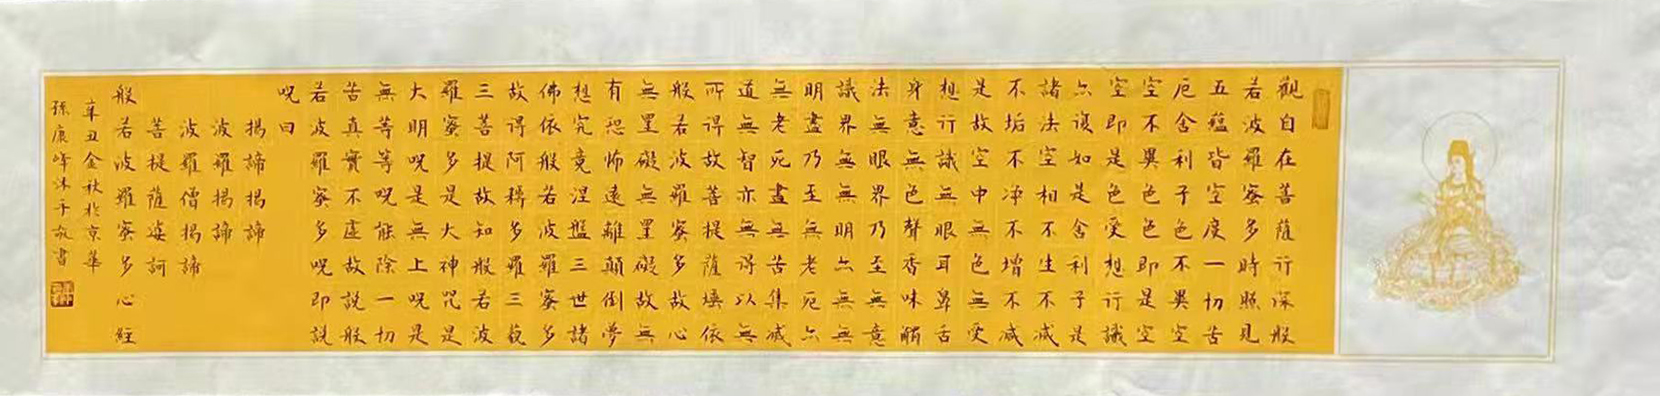 觀自在菩薩行深般
若波羅蜜多時照見
五蘊皆空度一切苦
厄舍利子色不異空
空不異色色即是空
空即是色受想行識
亦復如是舍利子是
諸法空相不生不滅
不垢不淨不增不減
是故空中無色無受
想行識無眼耳鼻舌
身意無色聲香味觸
法無眼界乃至無意
識界無無明亦無無
明盡乃至無老死亦
無老死盡無苦集滅
道無智亦無得以無
所得故菩提薩埵依
般若波羅蜜多故心
無罣礙無罣礙故無
有恐怖遠離顛倒夢
想究竟涅槃三世諸
佛依般若波羅蜜多
故得阿耨多羅三藐
三菩提故知般若波
羅蜜多是大神咒是
大明呪是無上呪是
無等等呪能除一切
苦真實不虛故說般
若波羅蜜多呪即說
呪曰
揭諦揭諦
波羅揭諦
波羅僧揭諦
菩提薩婆訶
般若波羅蜜多心經
辛丑金秋於京華
孫康峰沐手敬書